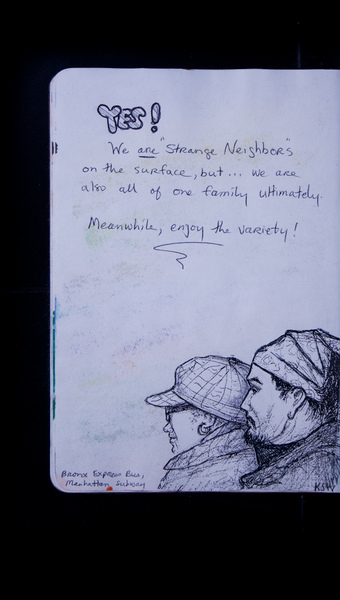 YES!
We are "Strange Neighbors"
on the surface, but... we are
also all of one family ultimately.
Meanwhile, enjoy the variety!
Bronx Express Bus,
Manhattan Subway